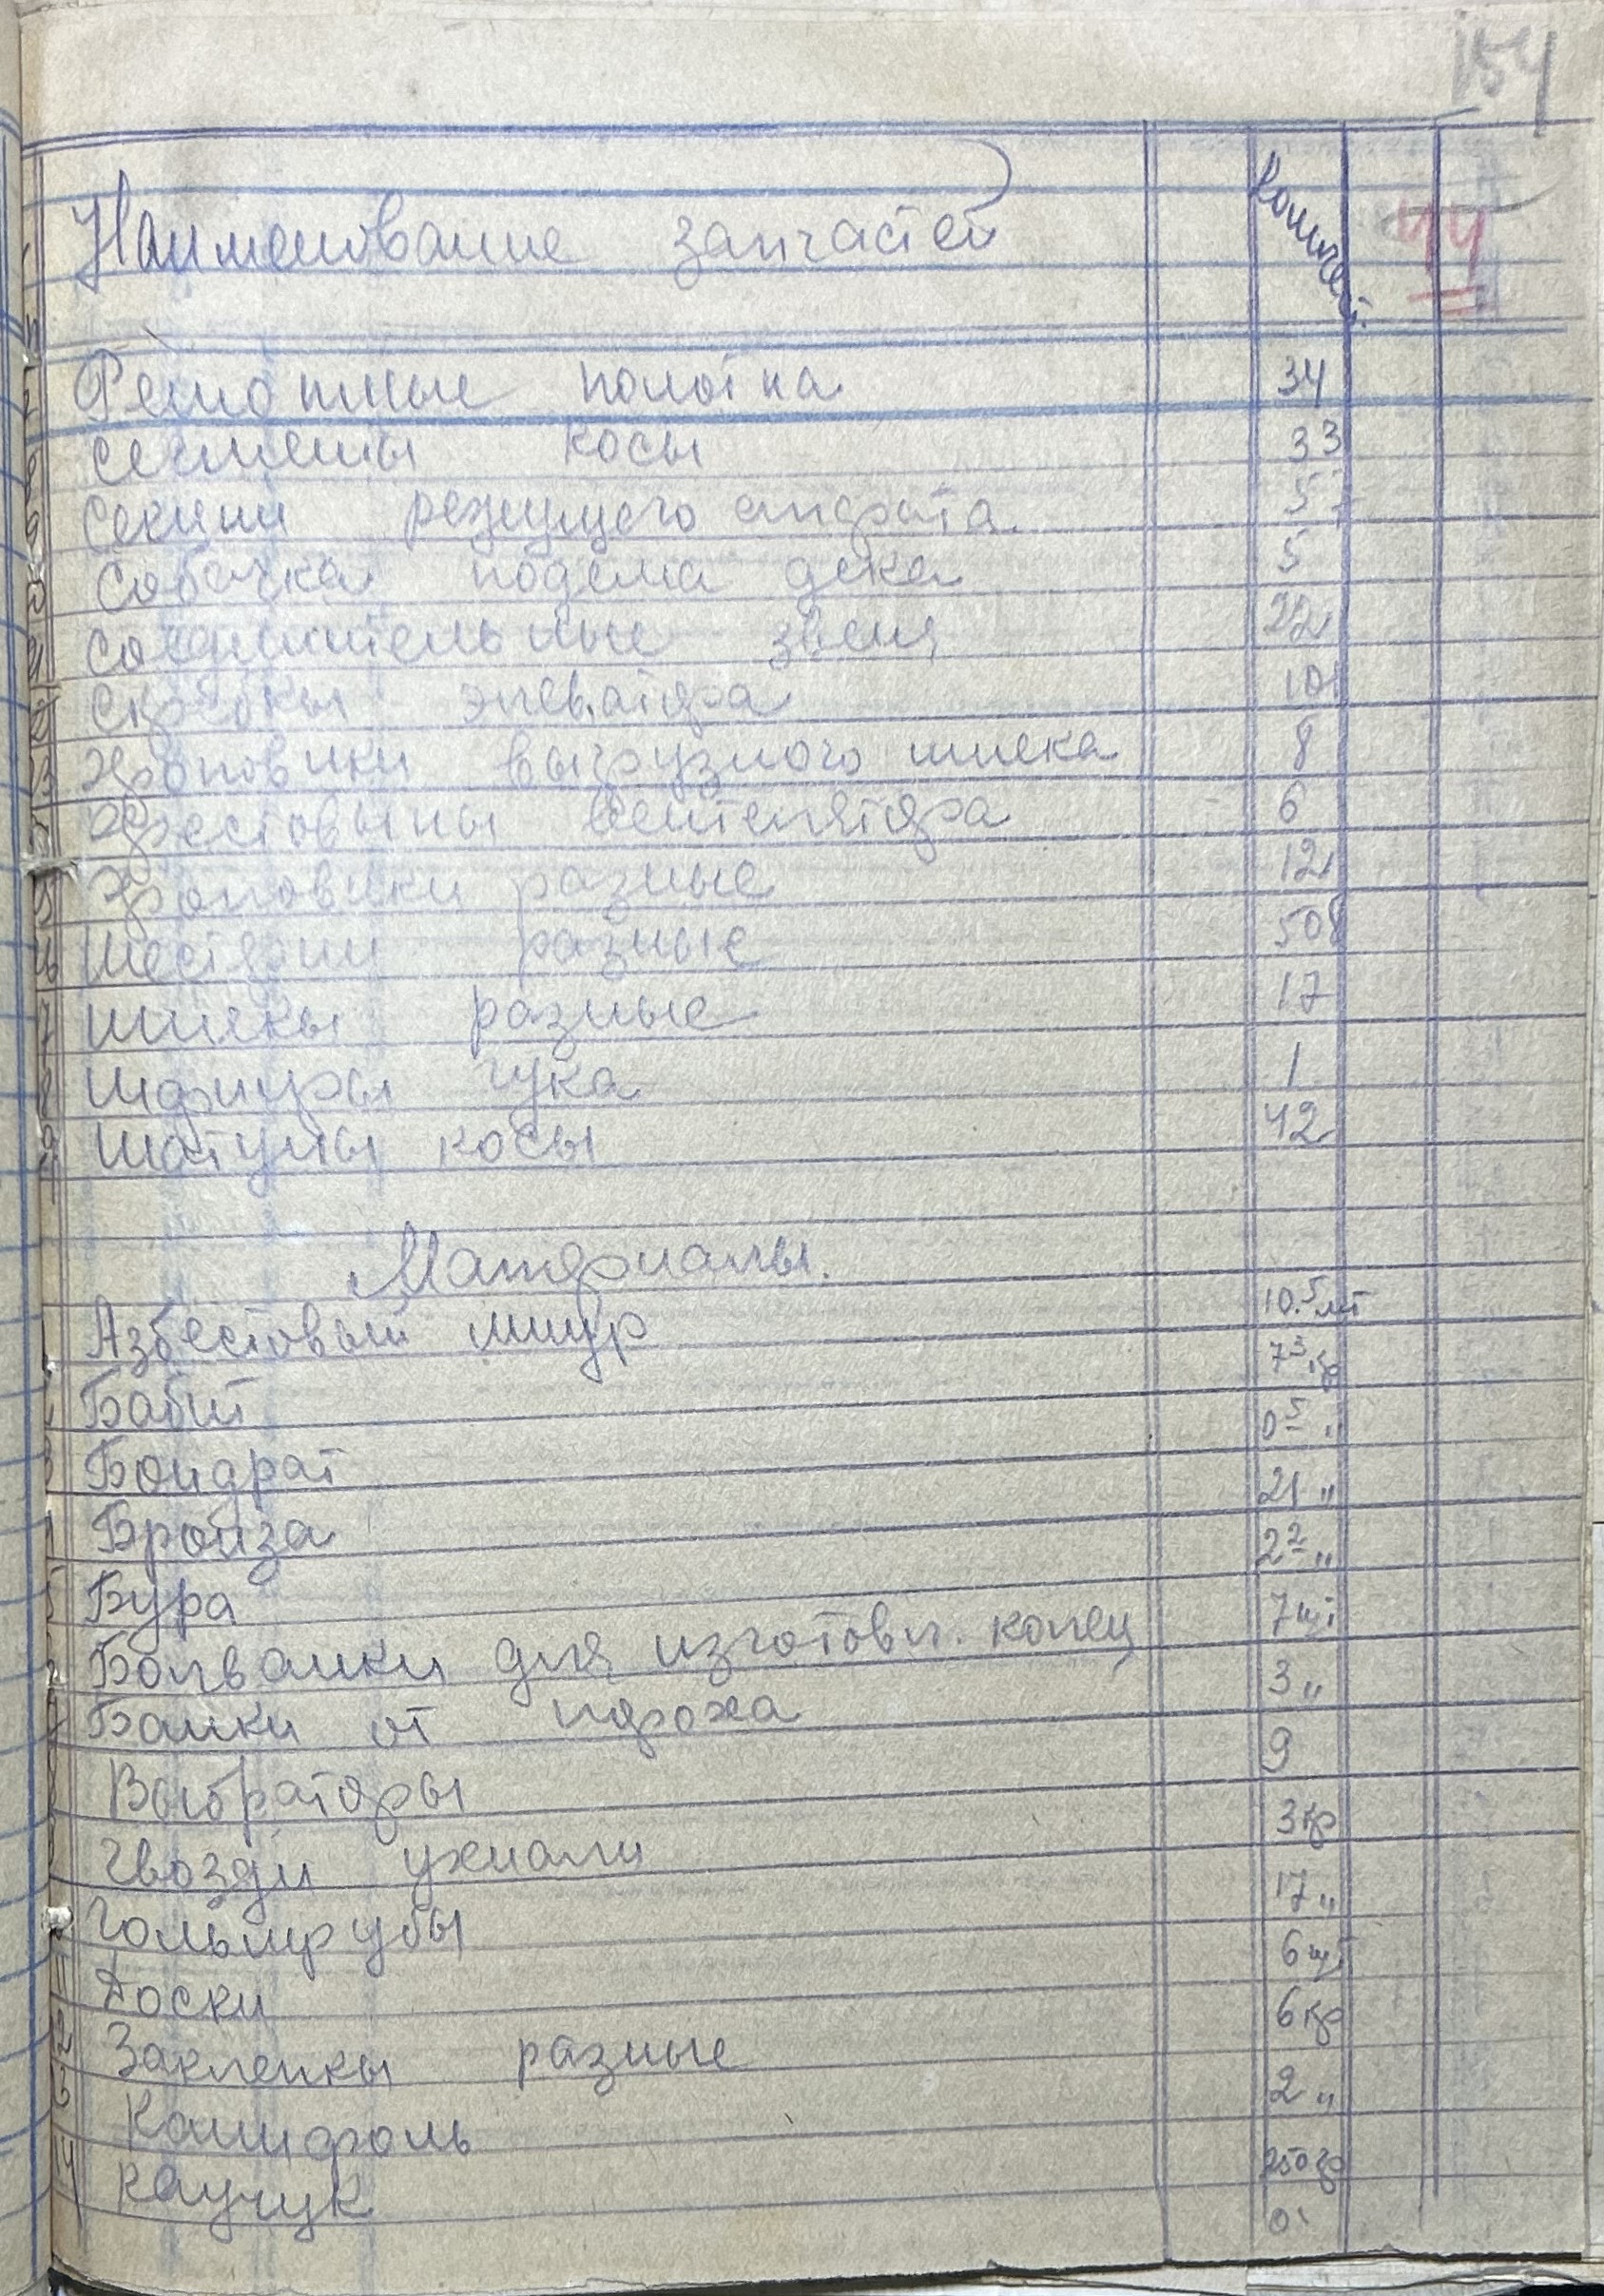 154
Наименование запчастей Количест. 44
Ремонтные полотна 34
Сегменты косы 33
Секции режущего апарата 5
Собачка подема дека 5
Соединительные звеня 22
Скребкы элеватора 101
Храповики выгрузного шнека 8
Хрестовыны вентелятора 6
Храповики разные 12
Шестерни разные 508
Шнекы разные 17
Шарниры гука 1
Шатуны косы 42
Материалы.
Азбестовый шнур 10.5 мт
Бабит 7 3 кг
Бондрат 0 5 "
Бронза 21 "
Бура 2 2 "
Болванки для изготовл. колец 7 шт
Банки от пороха 3 "
Выбраторы 9
Гвозди ухнали 3 кг
Гольшрубы 17 "
Доски 6 шт
Заклепкы разные 6 кг
Канифоль 2 "
Каучук 250 гр